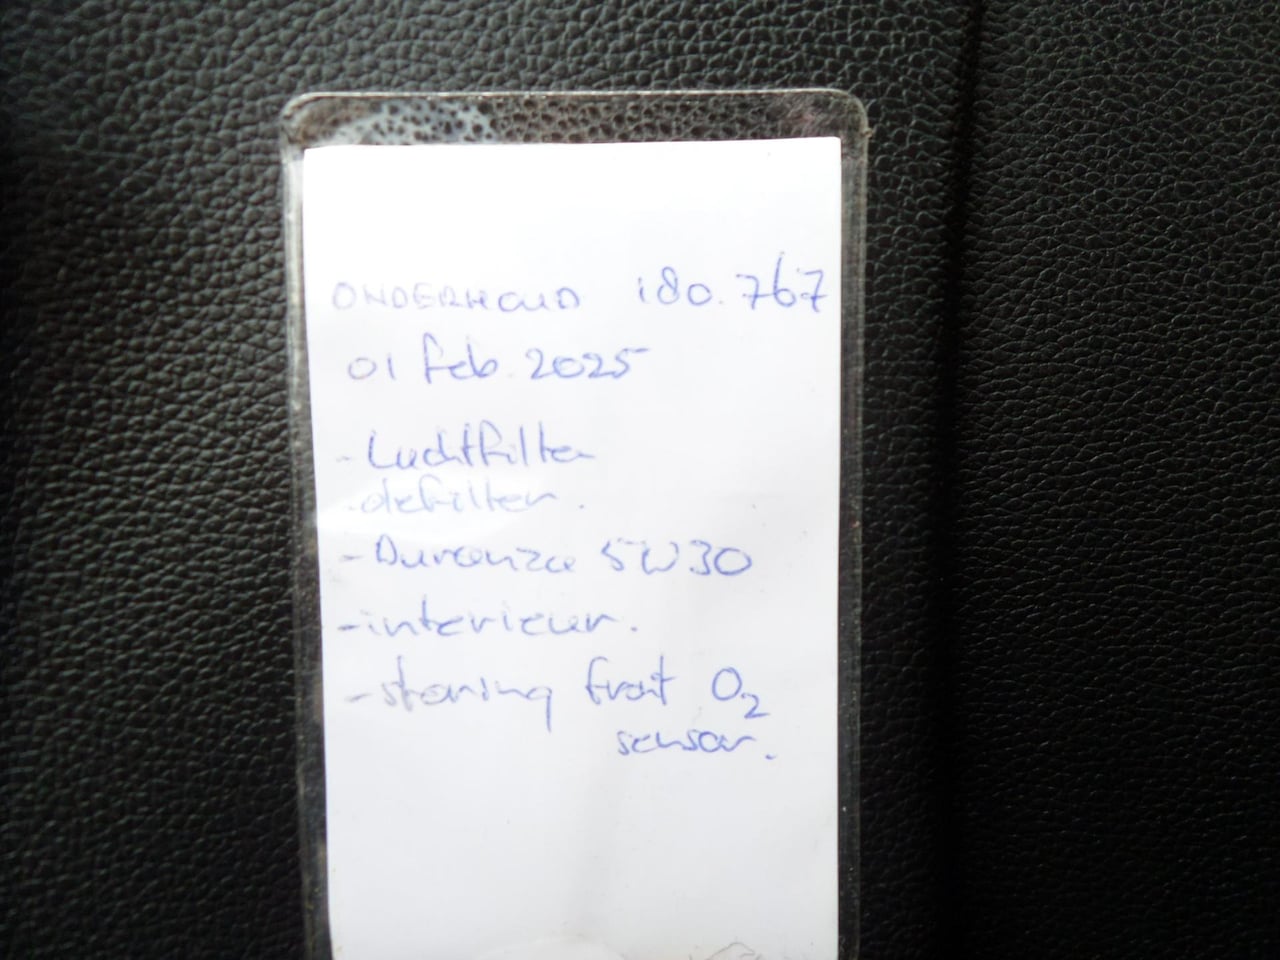 ONDERHOUD 180.767
01 feb 2025
- Luchtfilter
- oliefilter.
- Duranza 5W30
- interieur.
- storing front O2
sensor.